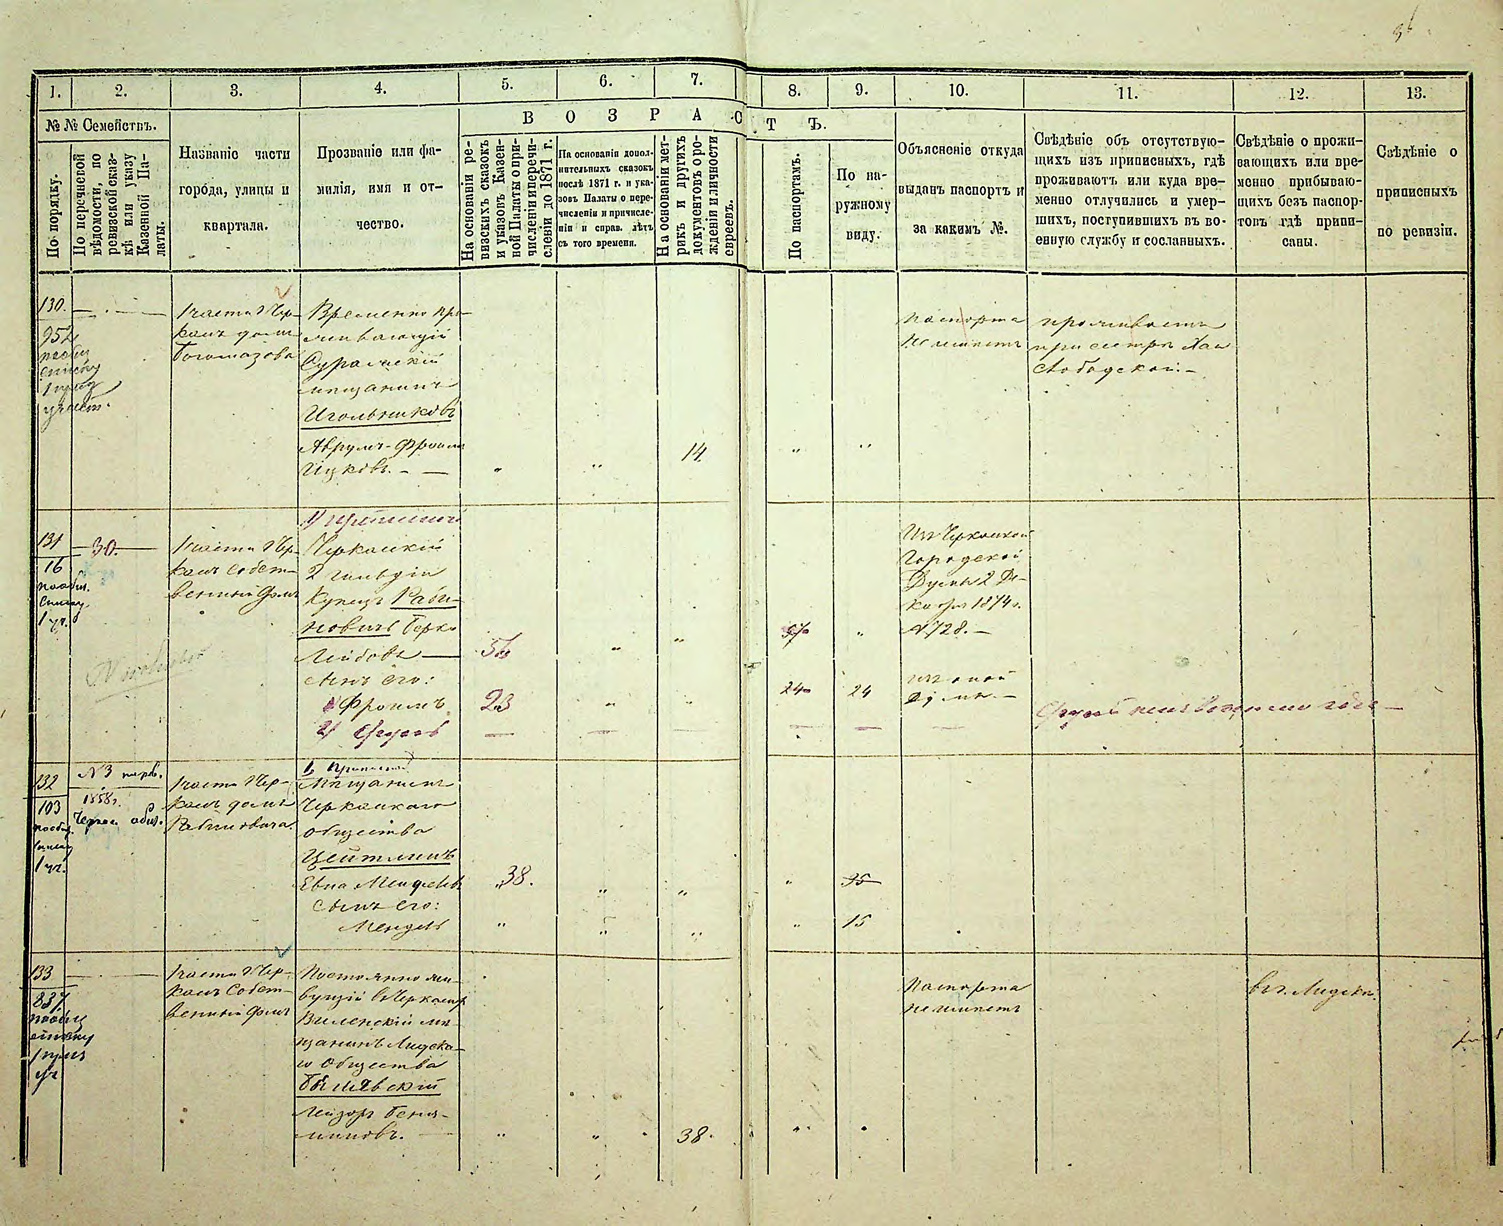 1.
2.
3.
4.
5.
6.
7.
8.
9.
10.
11.
12.
13.
В О З Р А С Т Ъ.
№ № Семействъ.
По порядку.
По перечневой
вѣдомости, по
ревизской сказ-
кѣ или указу
Казенной Па-
латы.
Названіе части
города, улицы и
квартала.
Прозваніе или фа-
милія, имя и от-
чество.
На основаніи ре-
визскихъ сказокъ
и указовъ Казен-
ной Палаты о при-
численіи и перечи-
сленіи до 1871 г.
На основаніи допол-
нительныхъ сказокъ
послѣ 1871 г. и ука-
зовъ Палаты о пере-
численіи и причисле-
ніи и справ. лѣтъ
съ того времени.
На основаніи мет-
рикъ и другихъ
документовъ о ро-
жденіи и личности
евреевъ.
По паспортамъ.
По на-
ружному
виду.
Объясненіе откуда
выданъ паспортъ и
за какимъ №.
Свѣдѣніе объ отсутствую-
щихъ изъ приписныхъ, гдѣ
проживаютъ или куда вре-
менно отлучились и умер-
шихъ, поступившихъ въ во-
енную службу и сосланныхъ.
Свѣдѣніе о прожи-
вающихъ или вре-
менно прибываю-
щихъ безъ паспор-
товъ гдѣ припи-
саны.
Свѣдѣніе о
приписныхъ
по ревизіи.
130.
952
по общ
списку
участ.
1 части Чер-
касъ домъ
Богомазова
Временно про-
живающій
Суражскій
мѣщанинъ
Игольниковъ
Аврумъ-Фроимъ
Ицковъ. —
14
паспорта
не имѣетъ
проживаетъ
при сестрѣ Хаи
Слободской. —
131
16
по общ.
списку
1 уч.
30.
1 части Чер-
касъ собст-
венный домъ
Черкаскій
2 гильдіи
Купецъ Раби-
новичъ Берко
Лейбовъ —
56
сынъ его:
Фроимъ
23
24
24
Изъ Черкаской
Городской
Думы 2 Де-
кабря 1874 г.
№ 728. —
изъ оной
Думы. —
132
103
по общ.
списку
1 уч.
№ 3 перв.
1858 г.
Черкас. общ.
1 части Чер-
касъ домъ
Рабиновича
Мѣщанинъ
Черкаскаго
общества
Цейтлинъ
38.
35
сынъ его:
Мендель
15
133
837
по общ
списку
уч
1 части Чер-
касъ собст-
венный домъ
Постоянно жи-
вущій въ Черкасахъ
Виленскій мѣ-
щанинъ Лидска-
го общества
Лейзоръ Бенья-
миновъ. —
38.
паспорта
не имѣетъ
въ г. Лидѣ.